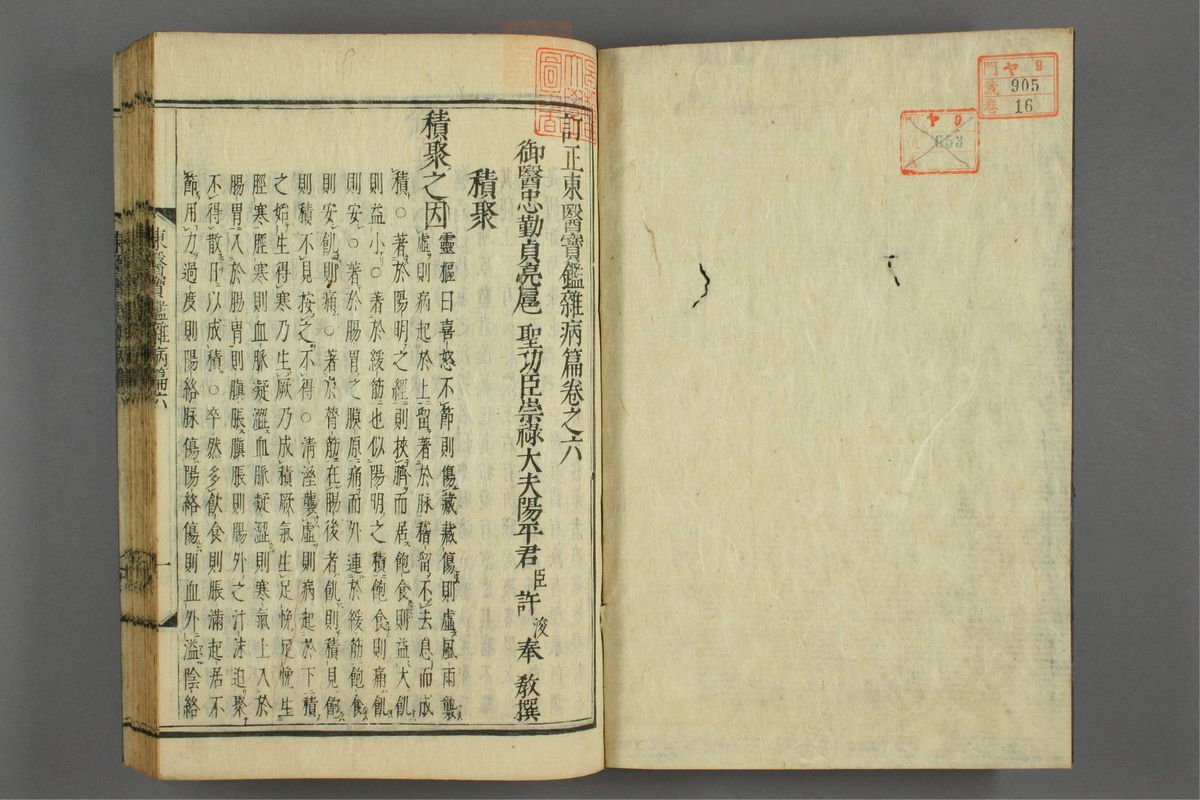 門 ヤ 日
號 905
卷 16
ヤ 日
653
訂正東醫寶鑑雜病篇卷之六
御醫忠勤貞亮扈 聖功臣崇祿大夫陽平君臣許浚奉 敎撰
積聚
積聚之因
靈樞曰喜怒不節則傷藏藏傷則虛風雨襲
虛則病起於上留著於脉稽留不去息而成
積○著於陽明之經則挾臍而居飽食則益大飢
則益小○著於緩筋也似陽明之積飽食則痛飢
則安○著於腸胃之膜原痛而外連於緩筋飽食
則安飢則痛○著於膂筋在腸後者飢則積見飽
則積不見按之不得○淸溼襲虛則病起於下積
之始生得寒乃生厥乃成積厥氣生足悗足悗生
脛寒脛寒則血脈凝澀血脈凝澀則寒氣上入於
腸胃入於腸胃則䐜脹䐜脹則腸外之汁沫迫聚
不得散日以成積○卒然多飮食則脹滿起居不
節用力過度則陽絡脉傷陽絡傷則血外溢陰絡
東醫寶鑑雜病篇六
一